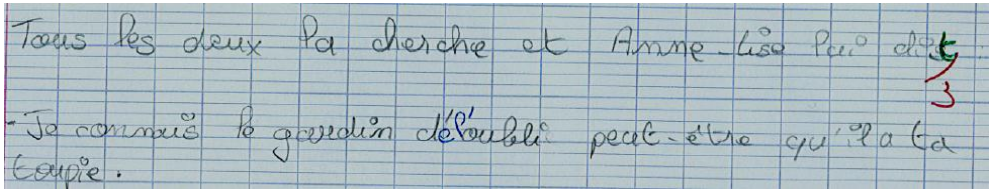 Tous les deux la cherche et Anne-Lise lui dit
3
- Je connais le gardin déloubli peut-être qu'il a ta
toupie.